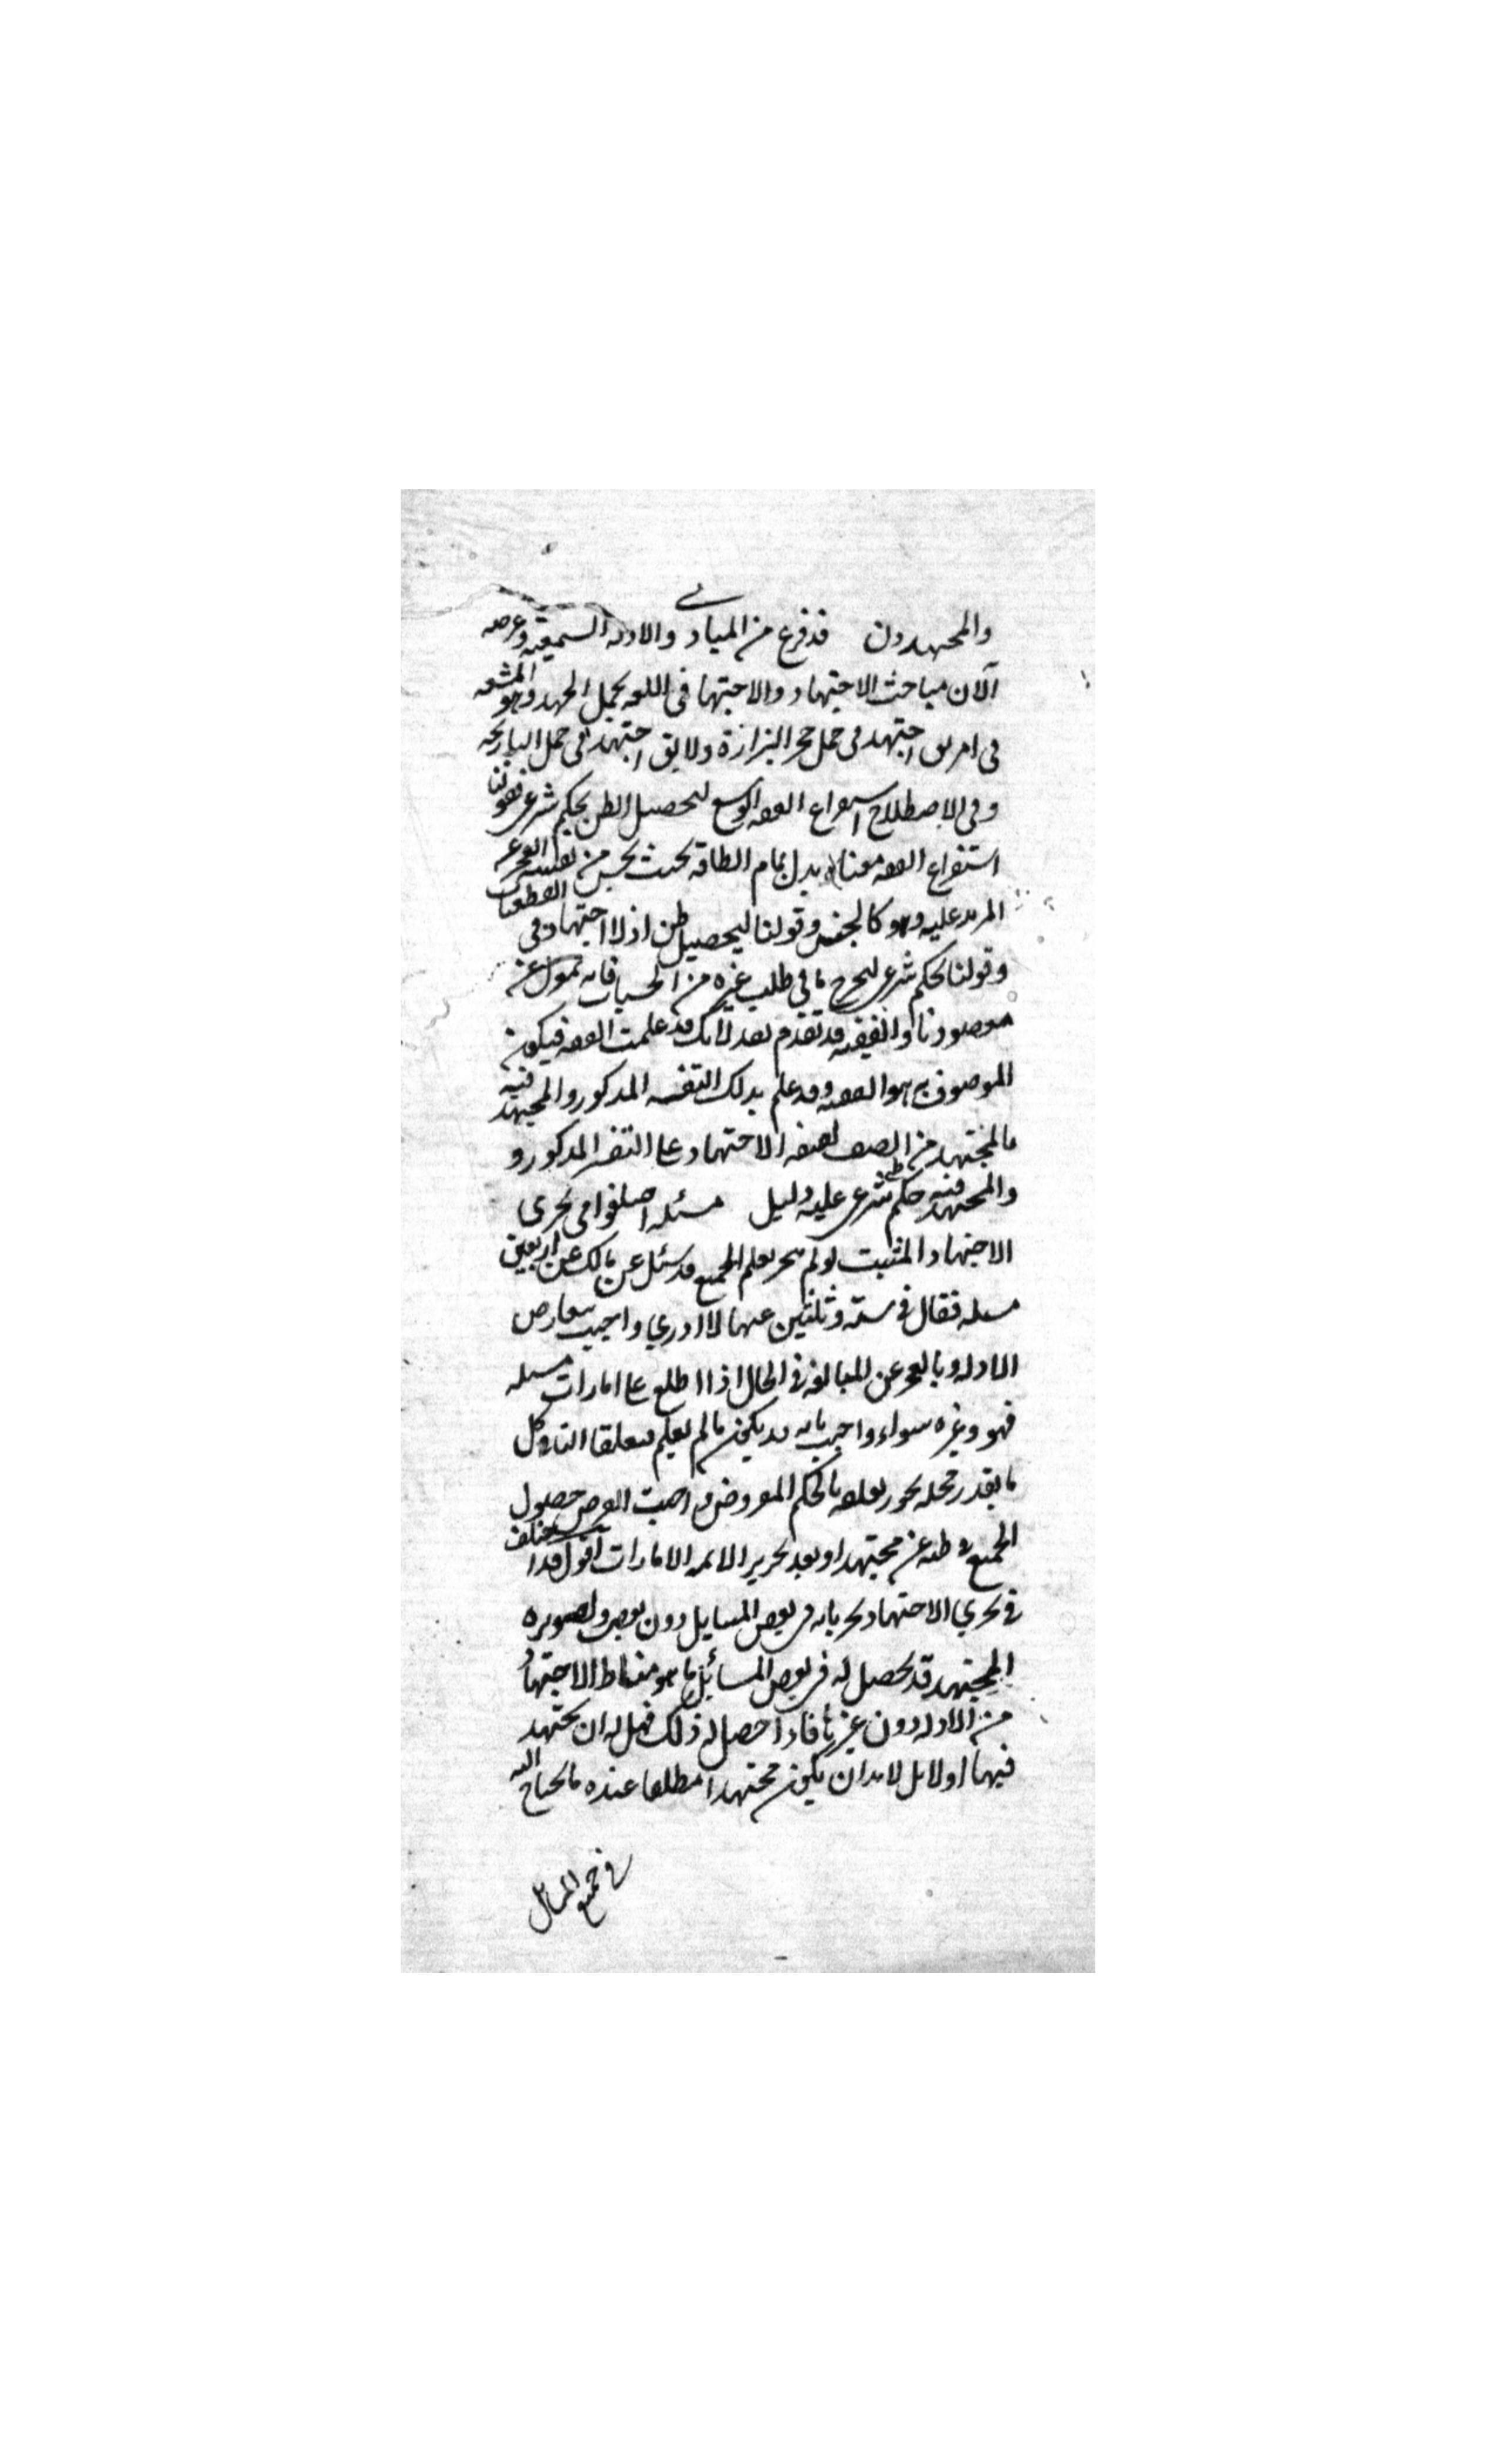 والمجتهدون قد فرغ من المبادى والادلة السمعية وغرضه
الآن مباحث الاجتهاد والاجتهاد فى اللغة تحمل الجهد وهو المشقة
فى امر يق اجتهد فى حمل حجر البزارة ولا يق اجتهد فى حمل النارنجة
وفى الاصطلاح استفراغ الفقيه الوسع لتحصيل الظن بحكم شرعى فقولنا
استفراغ الفقيه معناه بذل تمام الطاقة بحيث يحس من نفسه العجز عن
المزيد عليه وهو كالجنس وقولنا لتحصيل ظن اذ لا اجتهاد فى القطعيات
وقولنا بحكم شرعى ليخرج ما فى طلب غيره من الحسيات فانه بمعزل عن
مقصودنا والفقيه قد تقدم بعد لانك قد علمت الفقه فيكون
الموصوف به هو الفقيه وقد علم بذلك التفسير المذكور والمجتهد فيه
فالمجتهد من اتصف بصفة الاجتهاد على التفسير المذكور و
والمجتهد فيه حكم ظنى شرعى عليه دليل مسئله اختلفوا فى تجزى
الاجتهاد المثبت لو لم يتجز لعلم الجميع وقد سئل عن مالك عن اربعين
مسله فقال فى ستة وثلثين عنها لا ادري واجيب بتعارض
الادله وبالعجز عن المبالغة فى الحال اذا اطلع على امارات مسله
فهو وغيره سواء واجيب بانه قد يكون ما لم يعلم متعلقا النافى كل
ما يقدر جهله يجوز تعلقه بالحكم المفروض واجيب الفرض حصول
الجميع فى ظنه عن مجتهد او بعد تحرير الائمه الامارات اقول قد اختلف
فى تجزي الاجتهاد بجريانه فى بعض المسايل دون بعض وتصويره
المجتهد قد يحصل له فى بعض المسائل ما هو مناط الاجتهاد
من الادله دون غيرها فاذا حصل له ذلك فهل له ان يجتهد
فيها او لا بل لا بد ان يكون مجتهدا مطلقا عنده ما يحتاج اليه
فى جميع المسائل